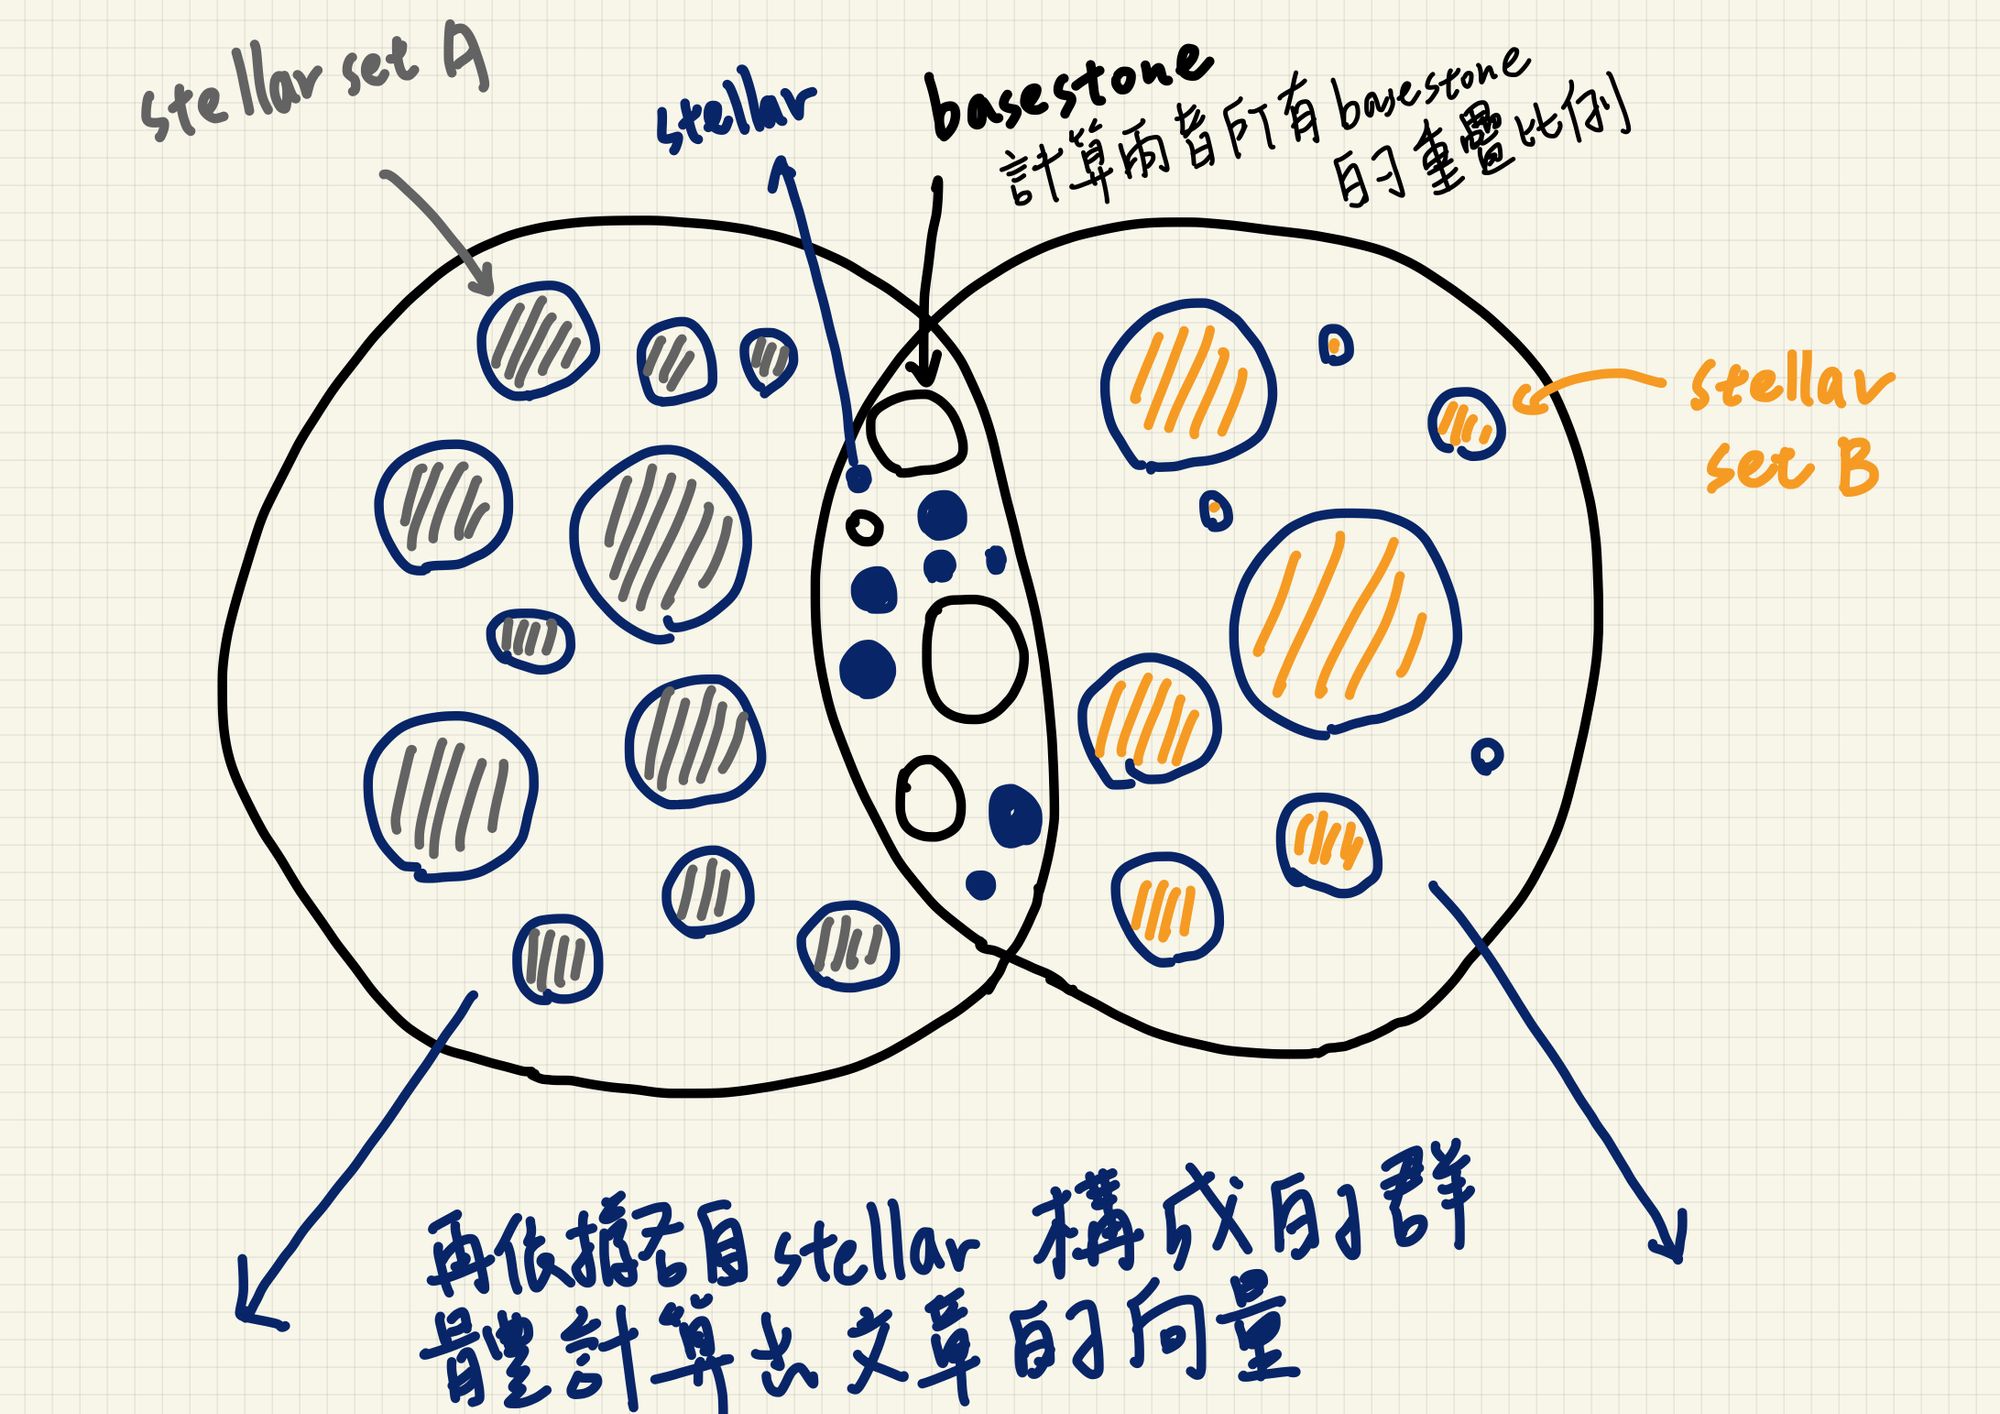 stellar set A
stellar
basestone
計算兩者所有basestone
的重疊比例
stellar
set B
再依據各自stellar 構成的群
體計算出文章的向量